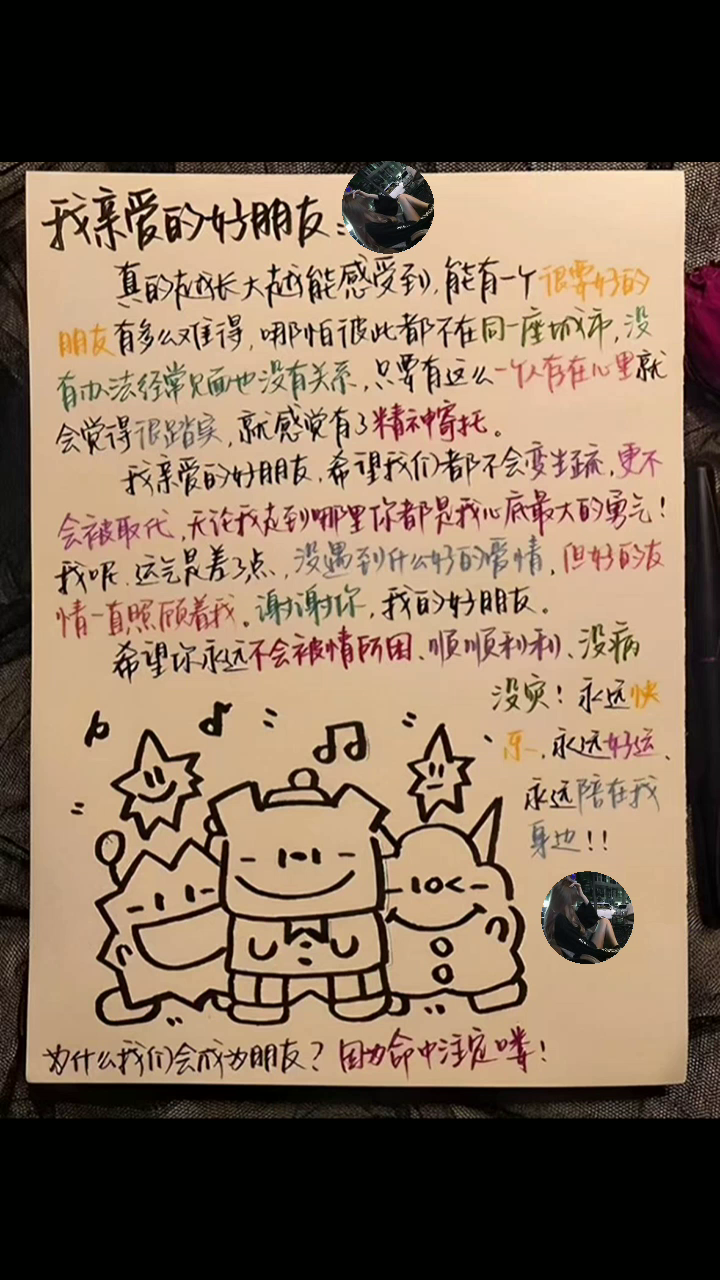 我亲爱的好朋友：
真的越长大越能感受到，能有一个很要好的
朋友有多么难得，哪怕彼此都不在同一座城市，没
有办法经常见面也没有关系，只要有这么一个人存在心里就
会觉得很踏实，就感觉有了精神寄托。
我亲爱的好朋友，希望我们都不会变生疏，更不
会被取代，无论我走到哪里你都是我心底最大的勇气！
我呢，运气是差了点，没遇到什么好的爱情，但好的友
情一直照顾着我。谢谢你，我的好朋友。
希望你永远不会被情所困、顺顺利利、没病
没灾！永远快
乐、永远好运、
永远陪在我
身边！！
为什么我们会成为朋友？因为命中注定喽！